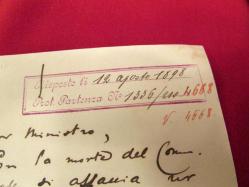 Risposto li 12 agosto 1898
Prot. Partenza N. 1336/ 4668
V. 4668
Ministro,
la morte del Comm.
si affaccia